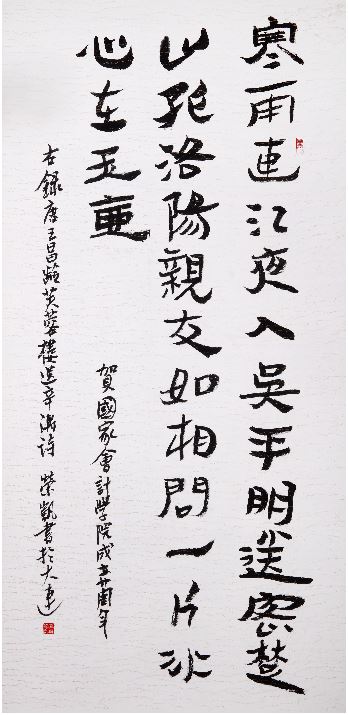 寒雨連江夜入吳平明送客楚
山孤洛陽親友如相問一片冰
心在玉壺
賀國家會計學院成立廿周年
右錄唐王昌齡芙蓉樓送辛漸詩 榮凱書於大連